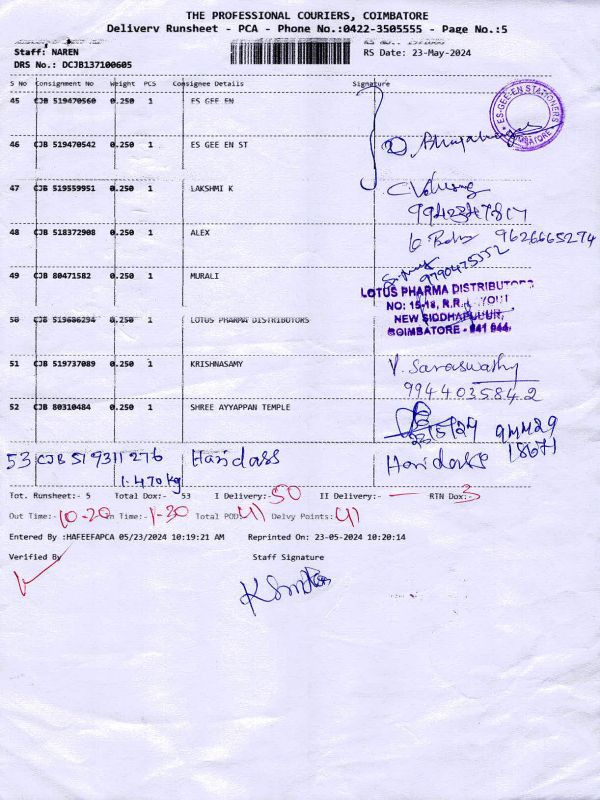 THE PROFESSIONAL COURIERS, COIMBATORE
Delivery Runsheet - PCA - Phone No.:0422-3505555 - Page No.:5
Staff: NAREN
RS Date: 23-May-2024
DRS No.: DCJB137100605
S No Consignment No Weight PCS Consignee Details Signature
45 CJB 519470560 0.250 1 ES GEE EN
ES-GEE-EN STATIONERS
COIMBATORE
46 CJB 519470542 0.250 1 ES GEE EN ST
47 CJB 519559951 0.250 1 LAKSHMI K
48 CJB 518372908 0.250 1 ALEX 9626665274
9790475552
49 CJB 80471582 0.250 1 MURALI
LOTUS PHARMA DISTRIBUTORS
NEW SIDDHAPUDUR,
COIMBATORE - 641 044.
50 CJB 519686294 0.250 1 LOTUS PHARMA DISTRIBUTORS
51 CJB 519737089 0.250 1 KRISHNASAMY V. Saraswathy
9944035842
52 CJB 80310484 0.250 1 SHREE AYYAPPAN TEMPLE
23/5/24
53 CJB 519311276 Haridass Haridass
1.470 kg
Tot. Runsheet:- 5 Total Dox:- 53 I Delivery:- 50 II Delivery:- — RTN Dox:- 3
Out Time:- 10-20 In Time:- 1-30 Total POD: 41 Delvy Points: 41
Entered By :HAFEEFAPCA 05/23/2024 10:19:21 AM Reprinted On: 23-05-2024 10:20:14
Verified By Staff Signature